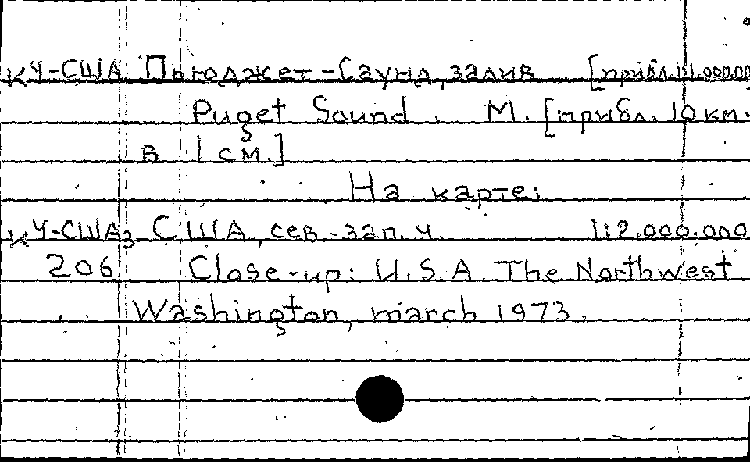 КЧ-США Пьюджет-Саунд, залив [прибл. 1:1.000.000]
Puget Sound. М. [прибл. 10 км.
в 1 см.]
На карте:
КЧ-США, США, сев.-зап. ч. 1:2.000.000
206 Close-up: U.S.A. The Northwest
Washington, march 1973.